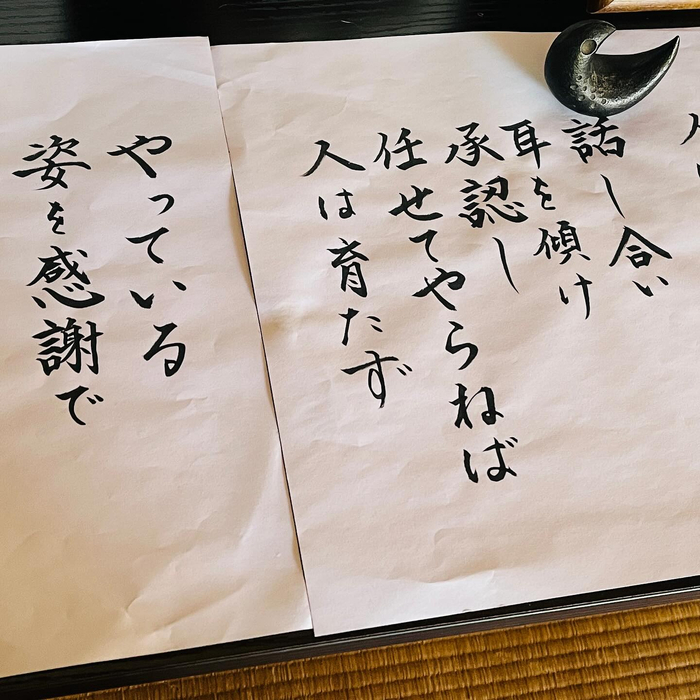 話し合い
耳を傾け
承認し
任せてやらねば
人は育たず
やっている
姿を感謝で